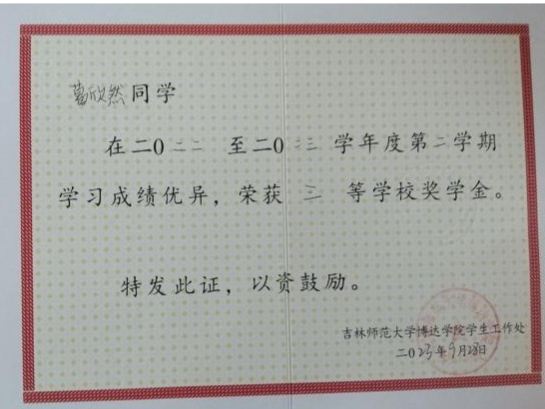 葛欣然同学
在二0二二 至二0二三 学年度第二学期
学习成绩优异，荣获 三 等学校奖学金。
特发此证，以资鼓励。
吉林师范大学博达学院学生工作处
二023年9月28日